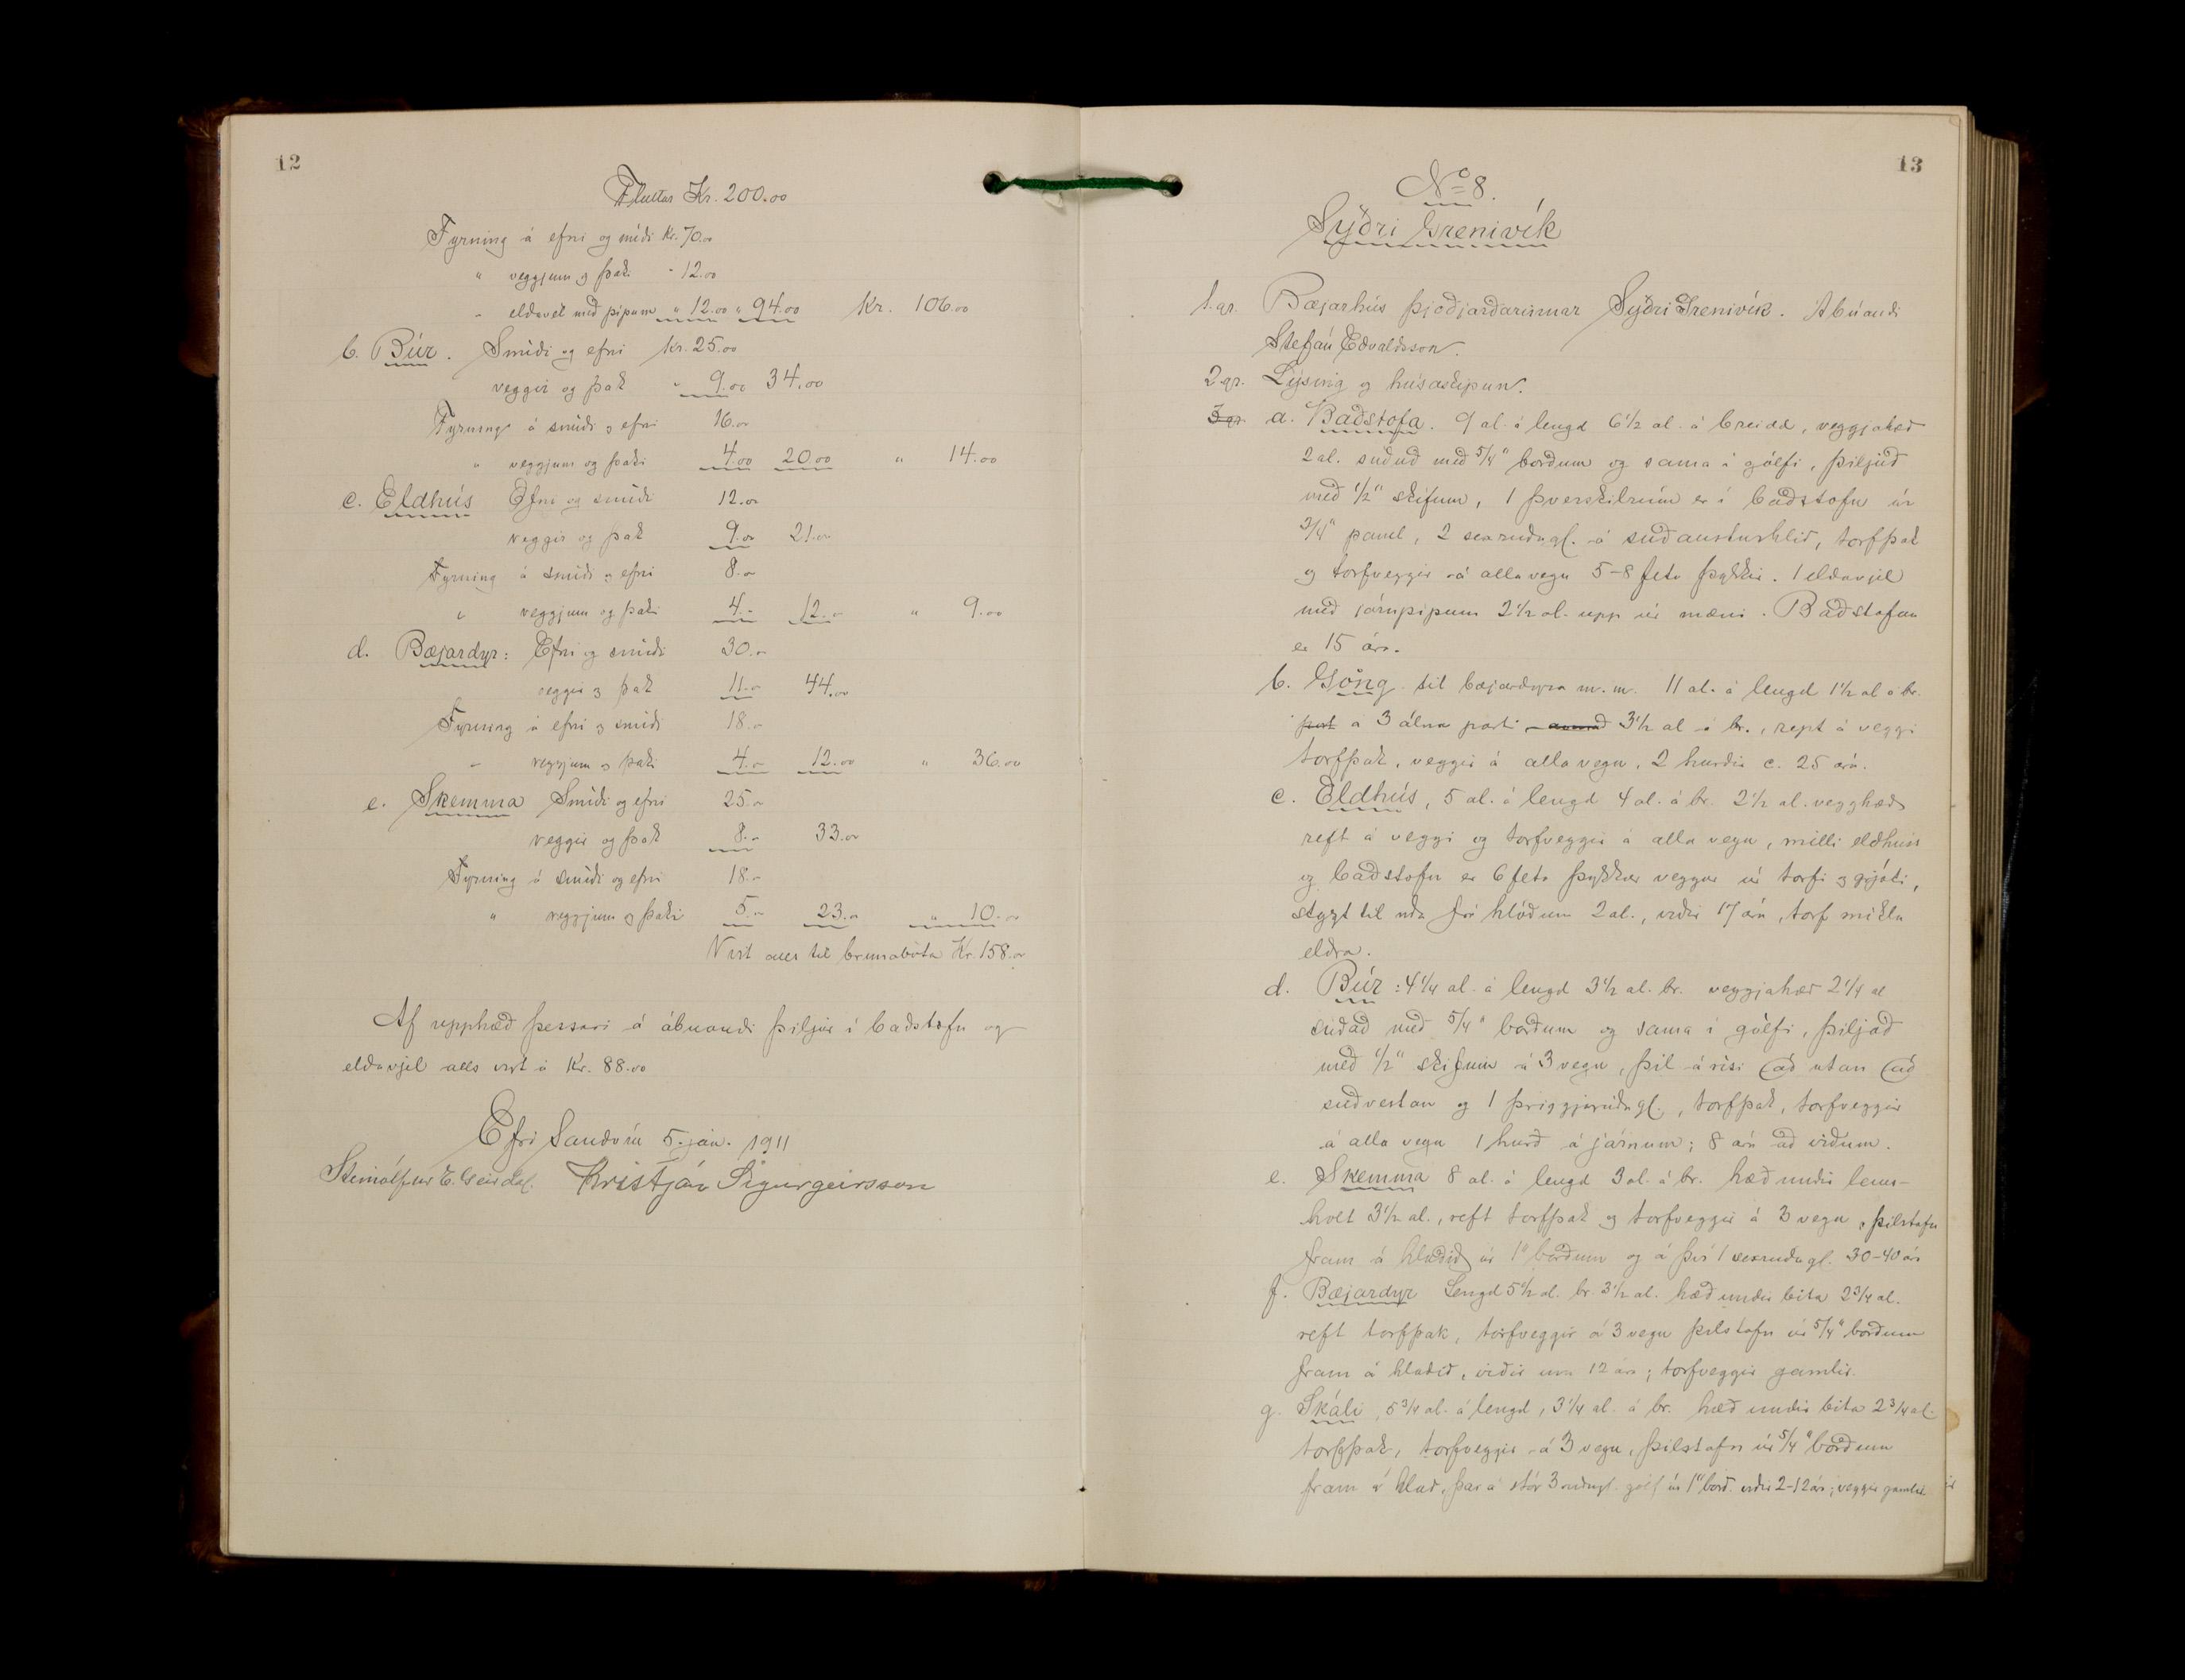 12
Fluttar Kr. 200.00
Fyrning á efni og smíði Kr. 70.00
" veggjum og þaki - 12.00
- eldavél með pípum " 12.00 " 94.00 Kr. 106.00
b. Búr. Smíði og efni Kr. 25.00
veggir og þak " 9.00 34.00
Fyrning á smíði og efni 16.00
" veggjum og þaki 4.00 20.00 " 14.00
c. Eldhús Efni og smíði 12.00
veggir og þak 9.00 21.00
Fyrning á smíði og efni 8.00
" veggjum og þaki 4.- 12.00 " 9.00
d. Bæjardyr: Efni og smíði 30.00
veggir og þak 11.00 44.00
Fyrning á efni og smíði 18.00
- veggjum og þaki 4.00 12.00 " 36.00
e. Skemma Smíði og efni 25.00
veggir og þak 8.00 33.00
Fyrning á smíði og efni 18.00
" veggjum og þaki 5.00 23.00 " 10.00
Virt alls til brunabóta Kr. 158.00
Af upphæð þessari á ábúandi þiljur í baðstofu og
eldavjel alls virt á Kr. 88.00
Efri Sandvík 5. jan. 1911
Steinólfur E. Geirdal. Kristján Sigurgeirsson
13
No 8.
Syðri Grenivík
1. gr. Bæjarhús þjóðjarðarinnar Syðri Grenivík. Ábúandi
Stefán Eðvaldsson.
2. gr. Lýsing og húsaskipun.
3 gr. a. Baðstofa. 9 al. á lengd 6 1/2 al. á breidd, veggjahæð
2 al. súðuð með 5/4" borðum og sama í gólfi, þiljuð
með 1/2" skífum, 1 þverskilrúm er í baðstofu úr
3/4" panel, 2 sexrúðugl. á suðausturhlið, torfþak
og torfveggir á alla vegu 5-8 feta þykkir. 1 eldavjel
með járnpípum 2 1/2 al. upp úr mæni. Baðstofan
er 15 ára.
b. Göng til bæjardyra m. m. 11 al. á lengd 1 1/2 al á br.
part á 3 álna parti - annað 3 1/2 al á br., rept á veggi
torfþak, veggir á alla vegu, 2 hurðir c. 25 ára.
c. Eldhús, 5 al. á lengd 4 al. á br. 2 1/2 al. vegghæð
reft á veggi og torfveggir á alla vegu, milli eldhúss
og baðstofu er 6 feta þykkur veggur úr torfi og grjóti,
stygt til uða frá hlóðum 2 al., viðir 17 ára, torf mikla
eldra.
d. Búr: 4 1/4 al. á lengd 3 1/2 al. br. veggjahæð 2 1/4 al
súðað með 5/4" borðum og sama í gólfi, þiljað
með 1/2" skífum á 3 vegu, þil á risi að utan að
suðvestan og 1 þriggjarúðugl., torfþak, torfveggir
á alla vegu 1 hurð á járnum; 8 ára að viðum.
e. Skemma 8 al. á lengd 3 al. á br. hæð undir lems-
holt 3 1/2 al., reft torfþak og torfveggir á 3 vegu, þilstafn
fram á hlaðið úr 1" borðum og á því 1 sexrúðugl. 30-40 ára
f. Bæjardyr Lengd 5 1/2 al. br. 3 1/2 al. hæð undir bita 2 3/4 al.
reft torfþak, torfveggir á 3 vegu þilstafn úr 5/4" borðum
fram á hlaðið, viðir um 12 ára; torfveggir gamlir.
g. Skáli, 5 3/4 al. á lengd, 3 1/4 al. á br. hæð undir bita 2 3/4 al.
torfþak, torfveggir á 3 vegu, þilstafn úr 5/4" borðum
fram á hlað, þar á stór 3 rúðugl. gólf úr 1" borð. viðir 2-12 ára; veggir gamlir